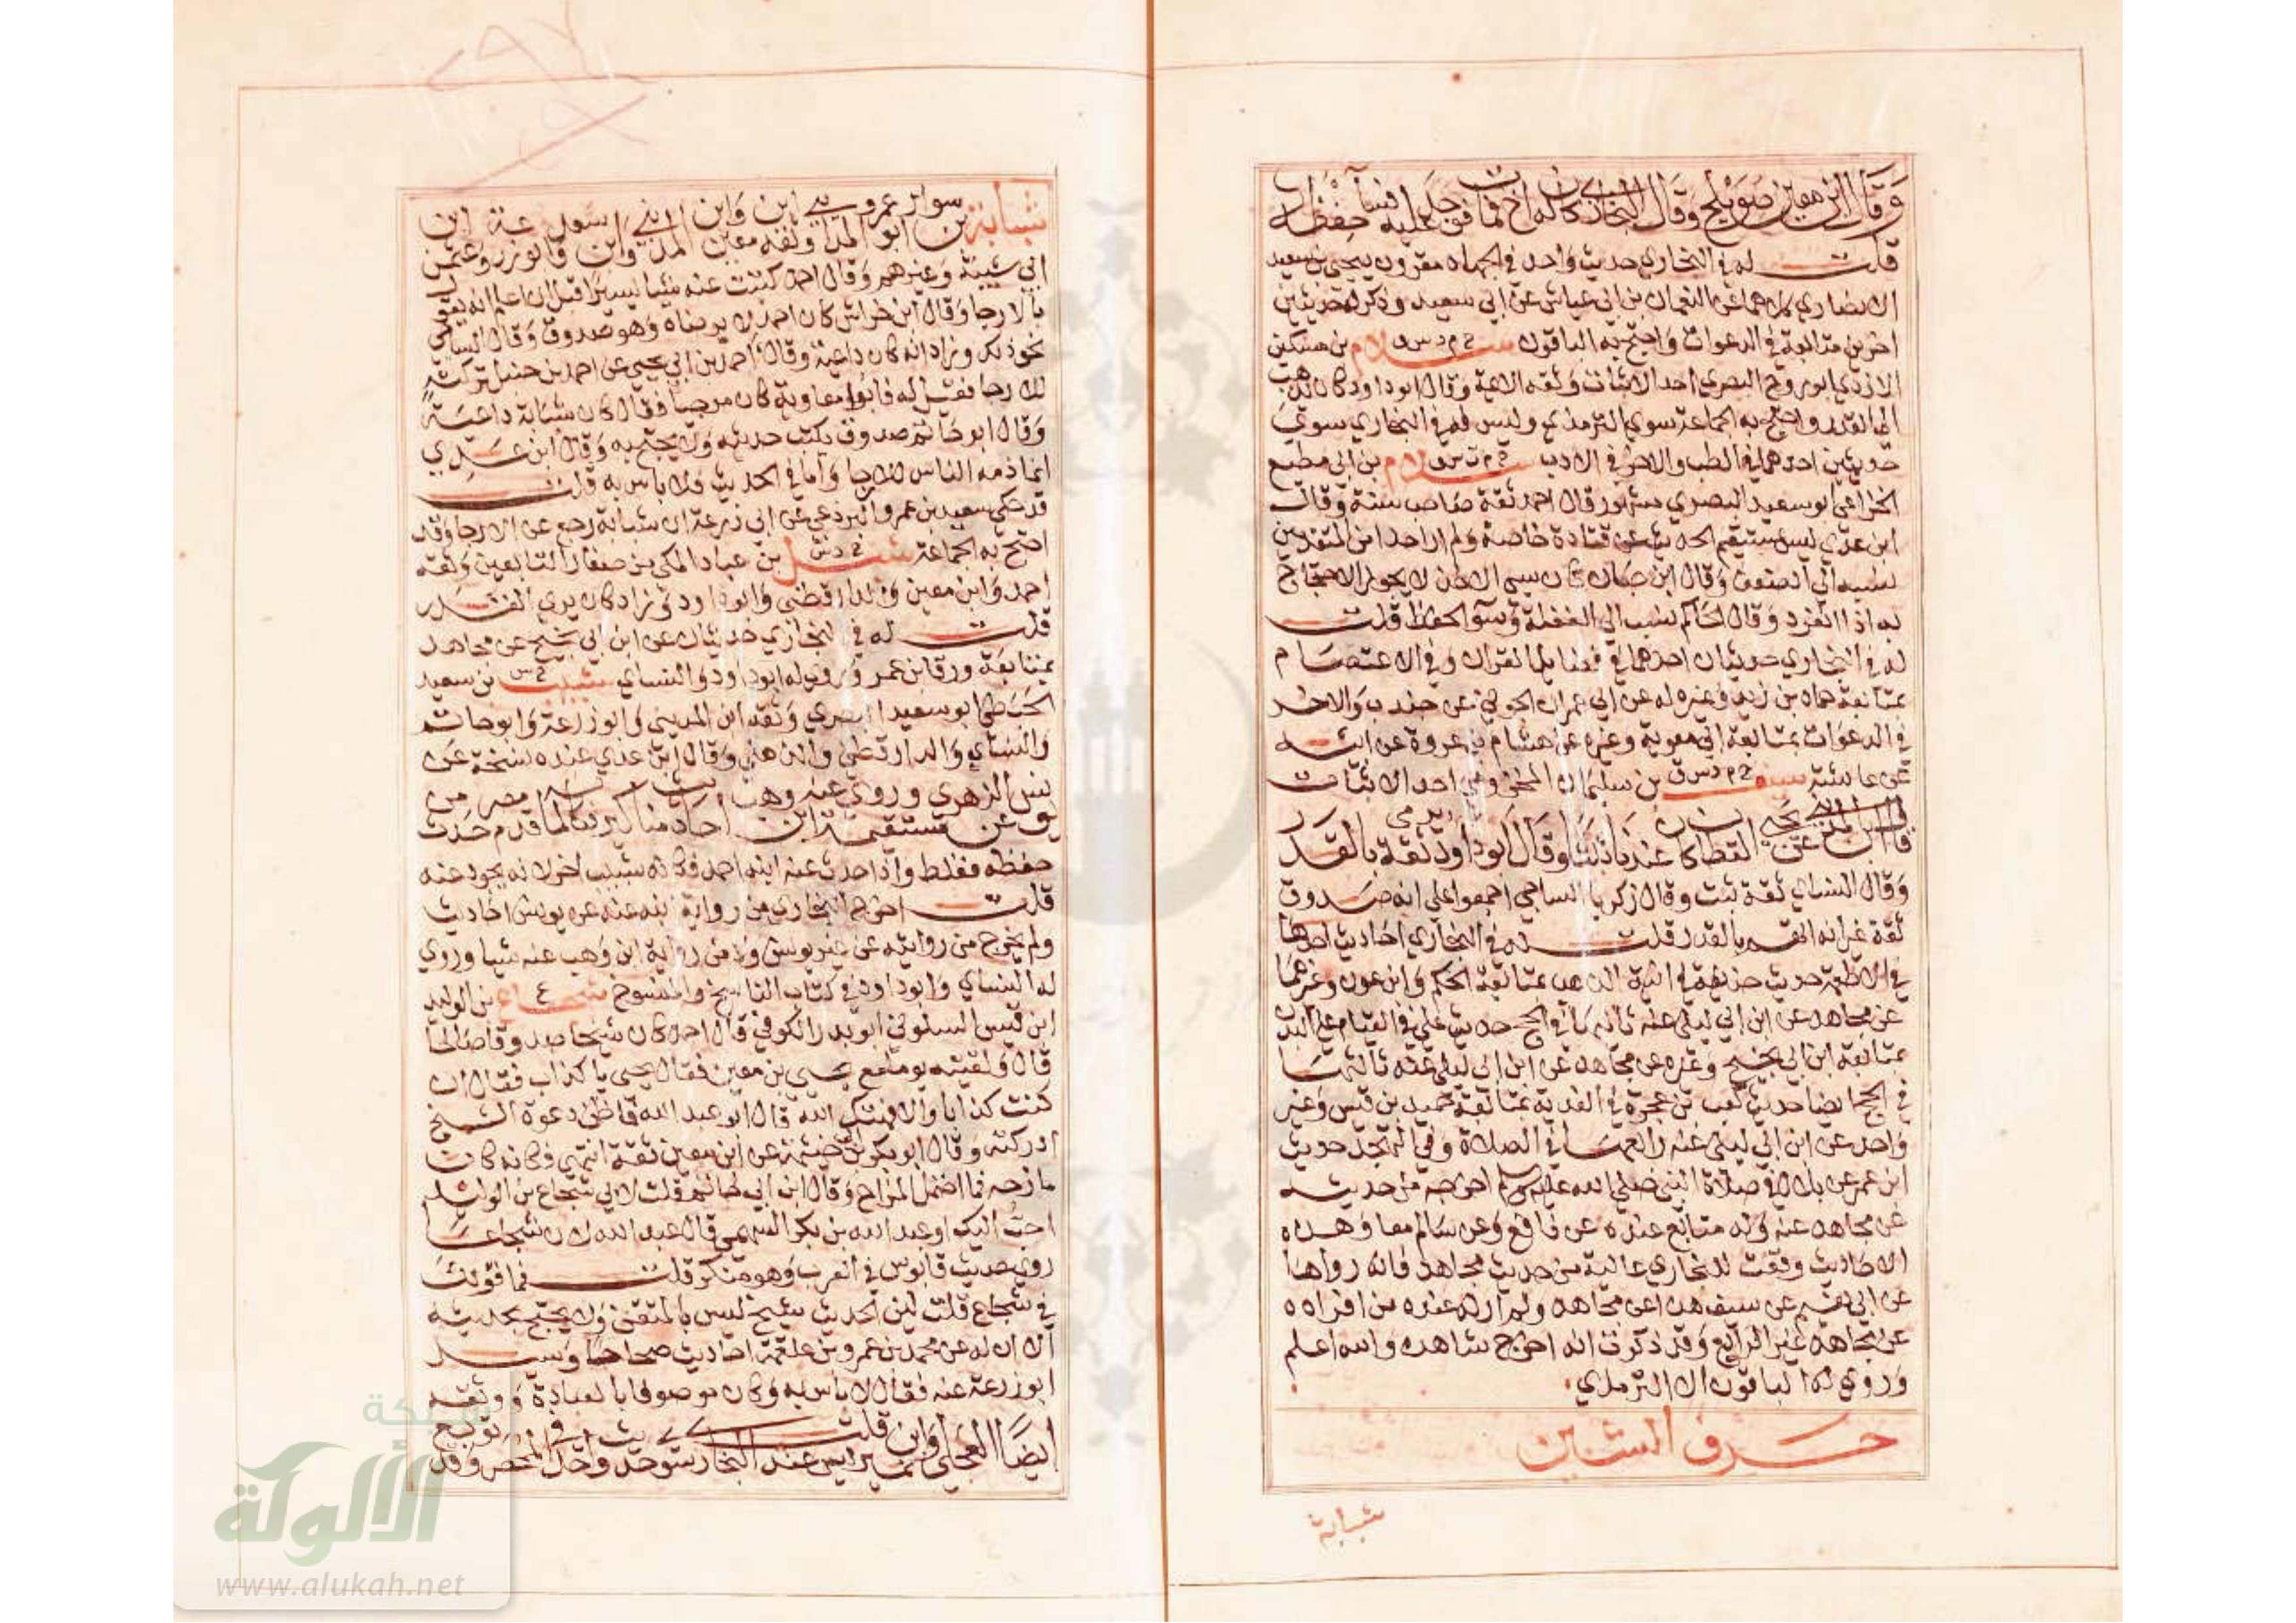 وقال ابن معين صويلح وقال البخاري كان له أخ فمات فوجد عليه فنسا حفظه
قلت له في البخاري حديث واحد في الجهاد مقرون بيحيى بن سعيد
الانصاري كلاهما عن النعمان بن ابي عياش عن ابي سعيد وذكر له حديثين
اخرين متابعة في الدعوات واحتج به الباقون خ م د س ق سلام بن مسكين
الازدي ابو روح البصري احد الاثبات وثقه الائمة وقال ابو داود كان يذهب
الى القدر واحتج به الجماعة سوى الترمذي وليس له في البخاري سوى
حديثين احدهما في الطب والاخر في الادب خ م ت س ق سلام بن ابي مطيع
الخزاعي ابو سعيد البصري مشهور قال احمد ثقة صاحب سنة وقال
ابن عدي ليس بمستقيم الحديث عن قتادة خاصة ولم ار احدا من المتقدمين
نسبه الى الضعف وقال ابن حبان كان سيء الاخذ لا يجوز الاحتجاج
به اذا انفرد وقال الحاكم نسب الى الغفلة وسوء الحفظ قلت
له في البخاري حديثان احدهما في فضايل القران وفي الاعتصام
بمتابعة حماد بن زيد وغيره له عن ابي عمران الجوني عن جندب والاخر
في الدعوات بمتابعة ابي معوية وغيره عن هشام بن عروة عن ابيه
عن عائشة خ م د س ق سيف بن سليمان المخزومي احد الاثبات
قال ابن المديني عن يحيى القطان كان عندنا ثبتا وقال ابو داود ثقة يرمى بالقدر
وقال النساي ثقة ثبت وقال زكريا الساجي اجمعوا على انه صدوق
ثقة غير انه اتهم بالقدر قلت له في البخاري احاديث احدها
في الاطعمة حديث حذيفة في انية الذهب بمتابعة الحكم وابن عون وغيرهما
عن مجاهد عن ابن ابي ليلى عنه ثانيها في الحج حديث علي في القيام على البدن
بمتابعة ابن ابي نجيح وغيره عن مجاهد عن ابن ابي ليلى عنه ثالثها
في الحج ايضا حديث كعب بن عجرة في الفدية بمتابعة حميد بن قيس وغير
واحد عن ابن ابي ليلى عنه رابعها في الصلاة وفي التهجد حديث
ابن عمر عن بلال في صلاة النبي صلى الله عليه وسلم اخرجه من حديثه
عن مجاهد عنه وله متابع عنده عن نافع وعن سالم معا وهذه
الاحاديث وقعت للبخاري عالية من حديث مجاهد فانه رواها
عن ابي نعيم عن سيف هذا عن مجاهد ولم ار له عنده من افراده
عن مجاهد غير الرابع وقد ذكرت انه اخرج شاهده والله اعلم
وروى له الباقون الا الترمذي
حرف الشين
شبابة
شبابة بن سوار ابو عمرو المدايني وثقه ابن معين وابن المديني وابن سعد وابو زرعة وعثمن بن
ابي شيبة وغيرهم وقال احمد كتبت عنه شيئا يسيرا قبل ان اعلم انه يقول
بالارجا وقال ابن خراش كان احمد لا يرضاه وهو صدوق وقال الساجي
نحو ذلك وزاد انه كان داعية وقال احمد بن ابي يحيى عن احمد بن حنبل تركته
للارجا فقيل له فابو معاوية كان مرجيا فقال كان شبابة داعية
وقال ابو حاتم صدوق يكتب حديثه ولا يحتج به وقال ابن عدي
انما ذمه الناس للارجا واما في الحديث فلا باس به قلت
قد حكى سعيد بن عمرو البرذعي عن ابي زرعة ان شبابة رجع عن الارجا وقد
احتج به الجماعة خ د س شبل بن عباد المكي من صغار التابعين وثقه
احمد وابن معين والدارقطني وابو داود وزاد كان يرى القدر
قلت له في البخاري حديثان عن ابن ابي نجيح عن مجاهد
بمتابعة ورقا بن عمر وروى له ابو داود والنساي خ س شبيب بن سعيد
الحبطي ابو سعيد البصري وثقه ابن المديني وابو زرعة وابو حاتم
والنساي والدارقطني والذهلي وقال ابن عدي عنده نسخة عن
يونس عن الزهري مستقيمة وروى عنه ابن وهب احاديث مناكير فكانه لما قدم مصر حدث من
حفظه فغلط واذا حدث عنه ابنه احمد فكانه شبيب اخر لانه يجود عنه
قلت اخرج البخاري من رواية ابنه عنه عن يونس احاديث
ولم يخرج من روايته عن غير يونس ولا من رواية ابن وهب عنه شيا وروى
له النساي وابو داود في كتاب الناسخ والمنسوخ ع شجاع بن الوليد
ابن قيس السكوني ابو بدر الكوفي قال احمد كان شيخا صدوقا صالحا
قال ولقيته يوما مع يحيى بن معين فقال يحيى يا كذاب فقال ان
كنت كذابا والا فهتك الله قال ابو عبد الله فاظن دعوة الشيخ
ادركته وقال ابو بكر بن خيثمة عن ابن معين ثقة انتهى فكانه كان
مازحه فما احتمل المزاح وقال ابن ابي حاتم قلت لابي شجاع بن الوليد
احب اليك او عبد الله بن بكر السهمي قال عبد الله لان شجاعا
روى حديث قابوس في العرب وهو منكر قلت فما قولك
في شجاع قلت لين الحديث شيخ ليس بالمتقن ولا يحتج بحديثه
الا ان له عن محمد بن عمرو بن علقمة احاديث صحاحا وسيل
ابو زرعة عنه فقال لا باس به وكان موصوفا بالعبادة ووثقه
ايضا العجلي وابن نمير قلت ليس عند البخاري سوى حديث واحد في المحصر وقد توبع
شبكة
الألوكة
www.alukah.net